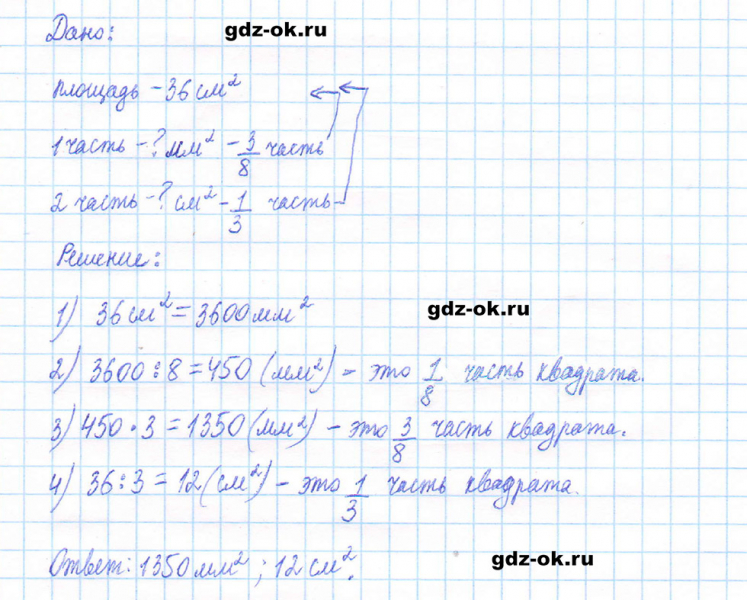 Дано: gdz-ok.ru
площадь - 36 см²
1 часть - ? мм² - 3/8 часть
2 часть - ? см² - 1/3 часть
Решение:
1) 36 см² = 3600 мм² gdz-ok.ru
2) 3600 : 8 = 450 (мм²) - это 1/8 часть квадрата.
3) 450 · 3 = 1350 (мм²) - это 3/8 часть квадрата.
4) 36 : 3 = 12 (см²) - это 1/3 часть квадрата.
Ответ: 1350 мм² ; 12 см². gdz-ok.ru